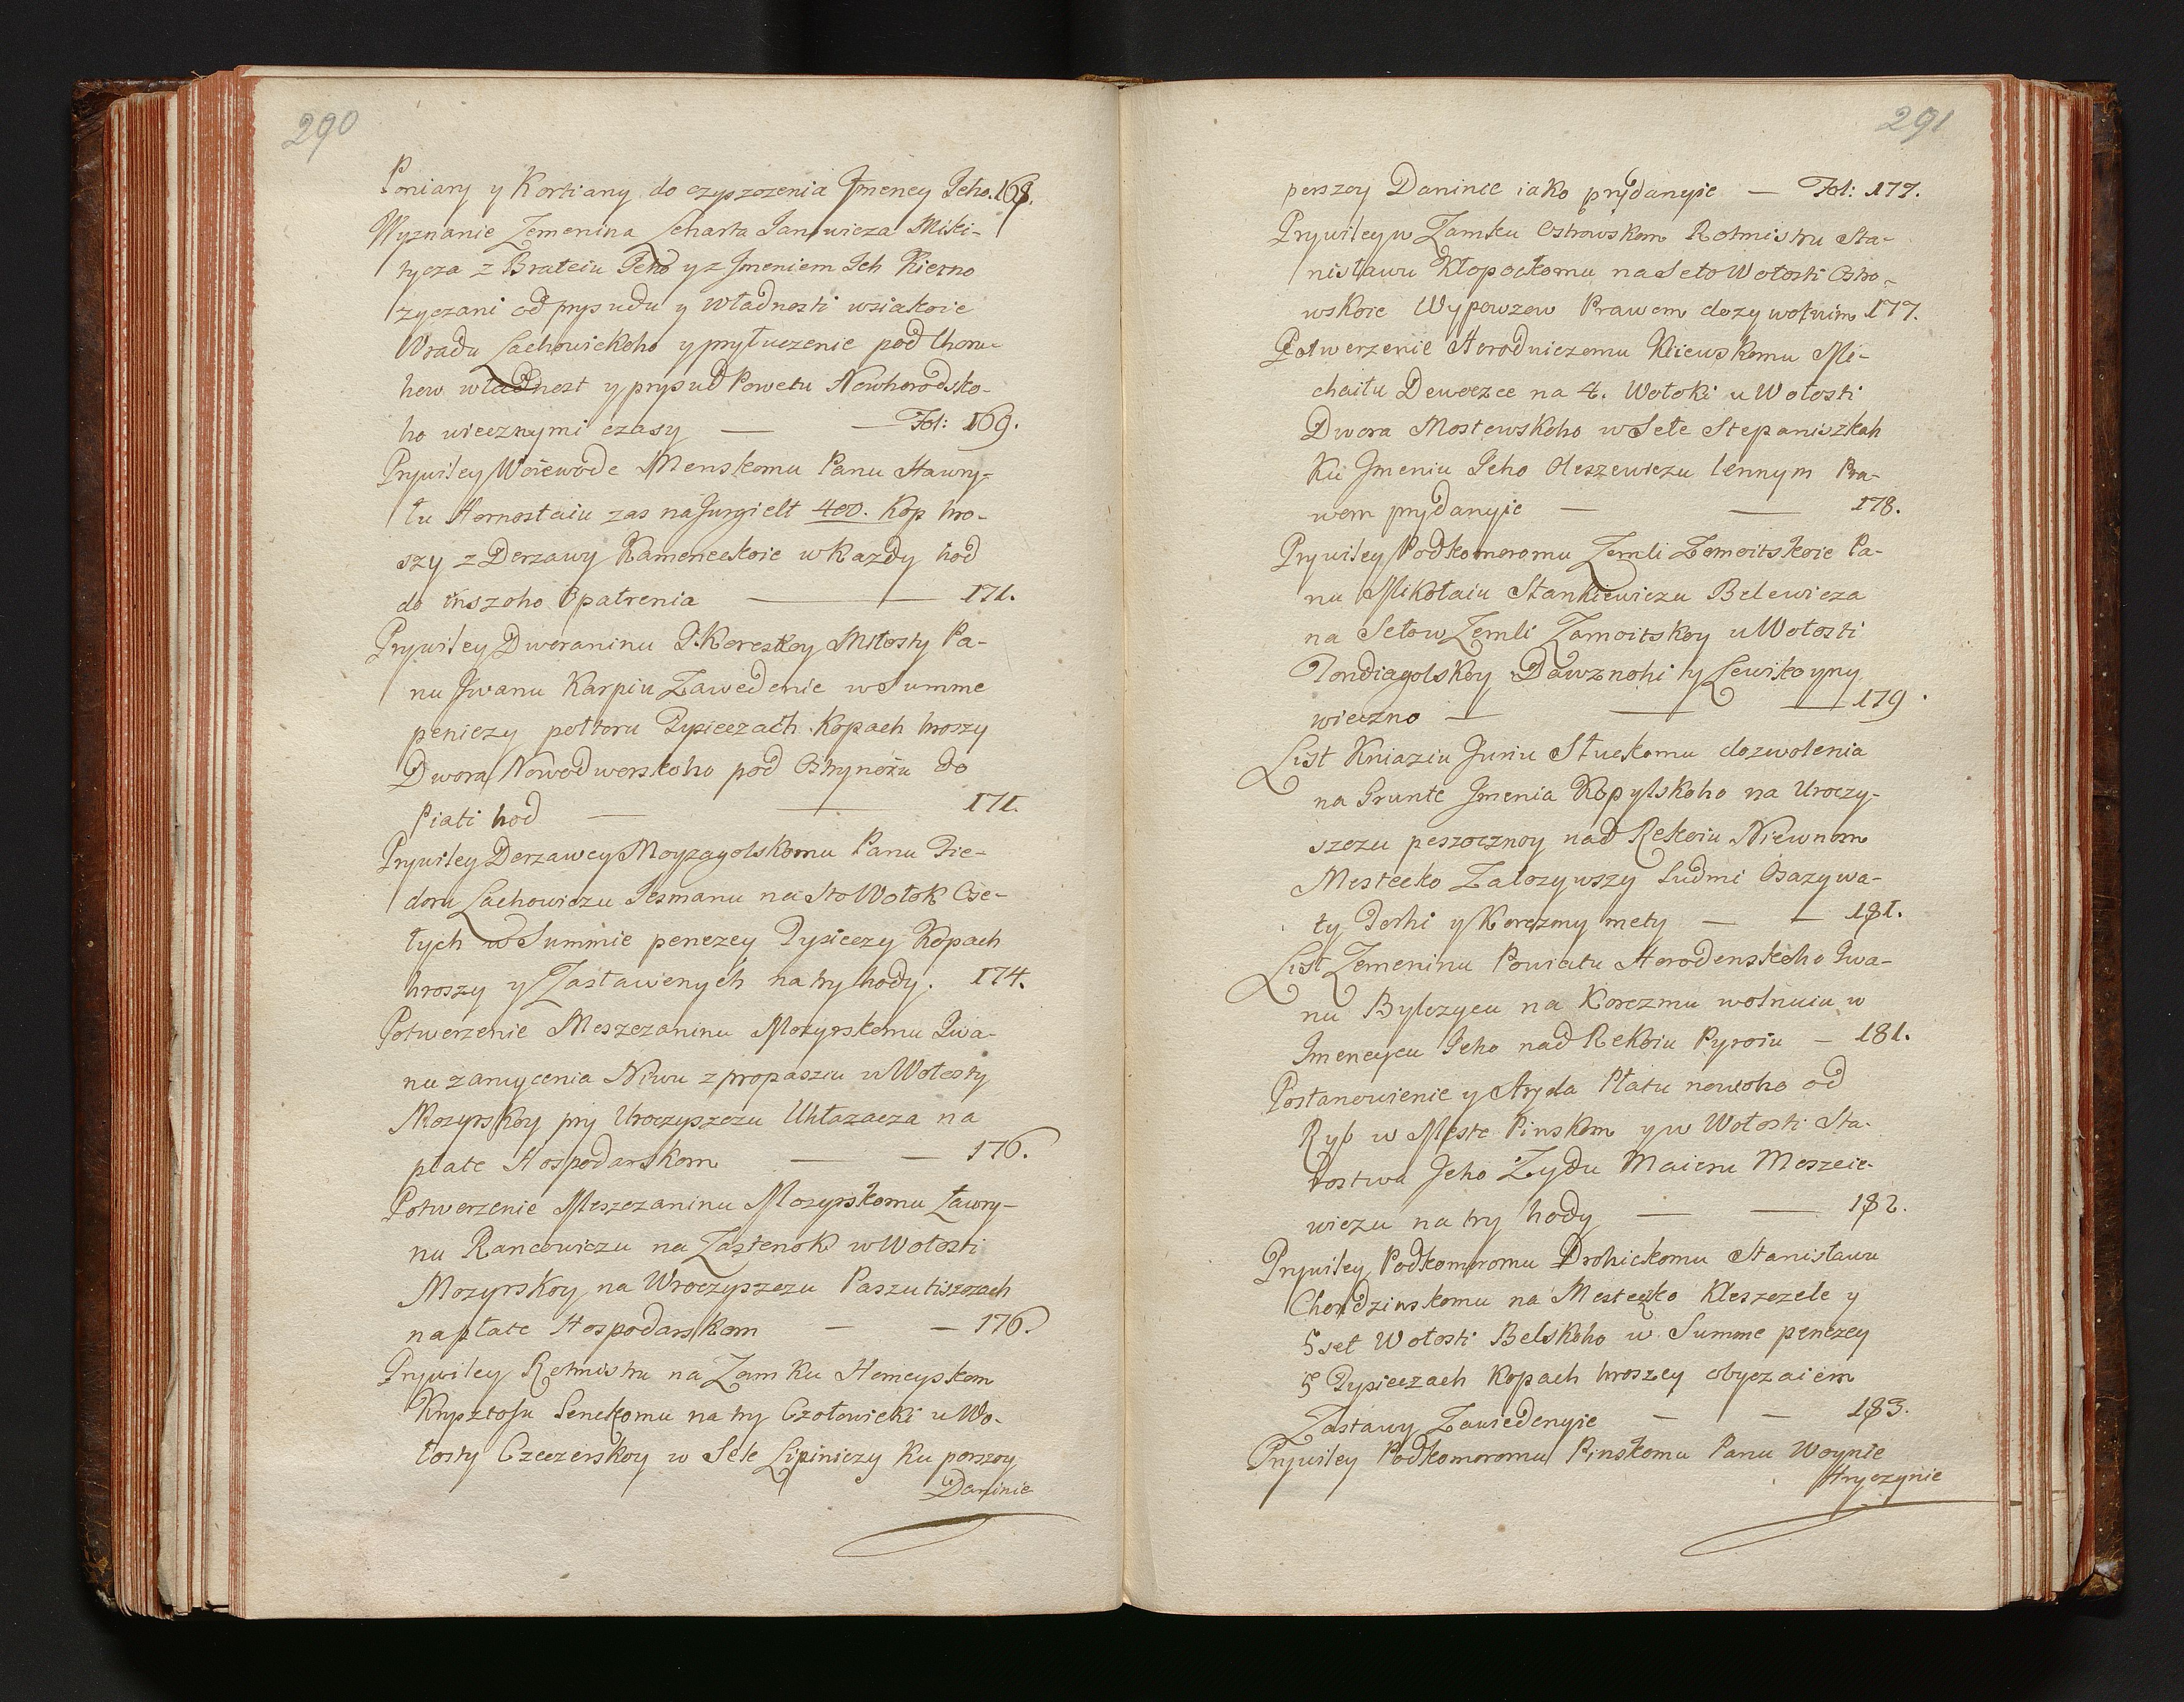 290
Poniary y Kortiany do czyszczenia Jmeney Jeho. 168.
Wyznanie Zemenina Leharta Janowicza Miki-
tycza z Brateiu Jeho y z Jmeniem Jeh Kierno
zyczani od prysudu y władnosti wsiakoie
Wradu Lachowickoho y pryłuczenie pod Choru-
how władnost y prysud Powetu Nowhorodsko-
ho wiecznymi czasy — — Fol: 169.
Prywiley Woiewode Menskomu Panu Hawry-
łu Hornostaiu zas na Jurgielt 400. Kop hro-
szy z Derzawy Kameneckoie w Kazdy hod
do inszoho Opatrenia — — 171.
Prywiley Dworaninu J. Korestkoy Miłosty Pa-
nu Jwanu Karpiu Zawedenie w Summe
peniezy połtoru Tysieczach Kopach hroszy
Dwora Nowodworskoho pod Ostrynoiu do
Piati hod — — 171.
Prywiley Derzawcy Moyzagolskomu Panu Fie-
doru Lachowiczu Jesmanu na Sto Wołok Ose-
łych w Summie penezey Tysieczy Kopach
hroszy y Zastawenych na try hody. 174.
Potwerzenie Meszczaninu Mozyrskomu Jwa-
nu zamycenia Niwu z propasziu u Wołosty
Mozyrskoy pry Uroczyszczu Uhłazacza na
płate Hospodarskom — — 176.
Potwerzenie Meszczaninu Mozyrskomu Ławry-
nu Rancowiczu na Zastenok w Wołosti
Mozyrskoy na Wroczyszczu Paszutiszczach
na płate Hospodarskom — — 176.
Prywiley Rotmistru na Zamku Homeyskom
Krysztofu Senckomu na try Czołowieki u Wo-
łosty Czeczerskoy w Sele Lipiniczy Ku perszoy
Daninie
291
perszoy Daninie iako prydanyie — Fol: 177.
Prywiley w Zamku Ostrowskom Rotmistru Sta-
nisławu Kłopockomu na Seło Wołosti Ostro-
wskoie Wypowzow Prawom dozywotnim 177.
Potwerzenie Horodniczemu Kiiewskomu Mi-
chaiłu Dewoczce na 4. Wołoki u Wołosti
Dwora Mostowskoho w Sele Stepaniszkah
Ku Jmeniu Jeho Oleszewiczu lennym Pra-
wom prydanyie — — 178.
Prywiley Podkomoromu Zemli Zomoitskoie Pa-
nu Mikołaiu Stankiewiczu Belewicza
na Sełow Zemli Zamoitskoy u Wołosti
Tondiagolskoy Dawznohi y Lewikoyny
wieczno — — — 179.
List Kniaziu Juriu Słuckomu dozwolenia
na Grunte Jmenia Kopylskoho na Uroczy-
szczu peszocznoy nad Rekoiu Niewnom
Mestecko Zalozywszy Ludmi Osazywa-
ty Torhi y Korczmy mety — — 181.
List Zemeninu Powiatu Horodenskoho Jwa-
nu Bylczycu na Korczmu wolnuiu w
Jmeneycu Jeho nad Rekoiu Pyroiu — 181.
Postanowienie y Aryda Płatu nowoho od
Ryb w Meste Pinskom y w Wołosti Sta-
rostwa Jeho Zydu Maieru Moszeie-
wiczu na try hody — — 182.
Prywiley Podkomoromu Drohickomu Stanisławu
Chondzinskomu na Mesteczko Kleszczele y
5 seł Wołosti Belskoho w Summe penezey
5 Tysieczach Kopach hroszey obyczaiem
Zastawy Zawiedenyie — — 183.
Prywiley Podkomoromu Pinskomu Panu Woynie
Hryczynie